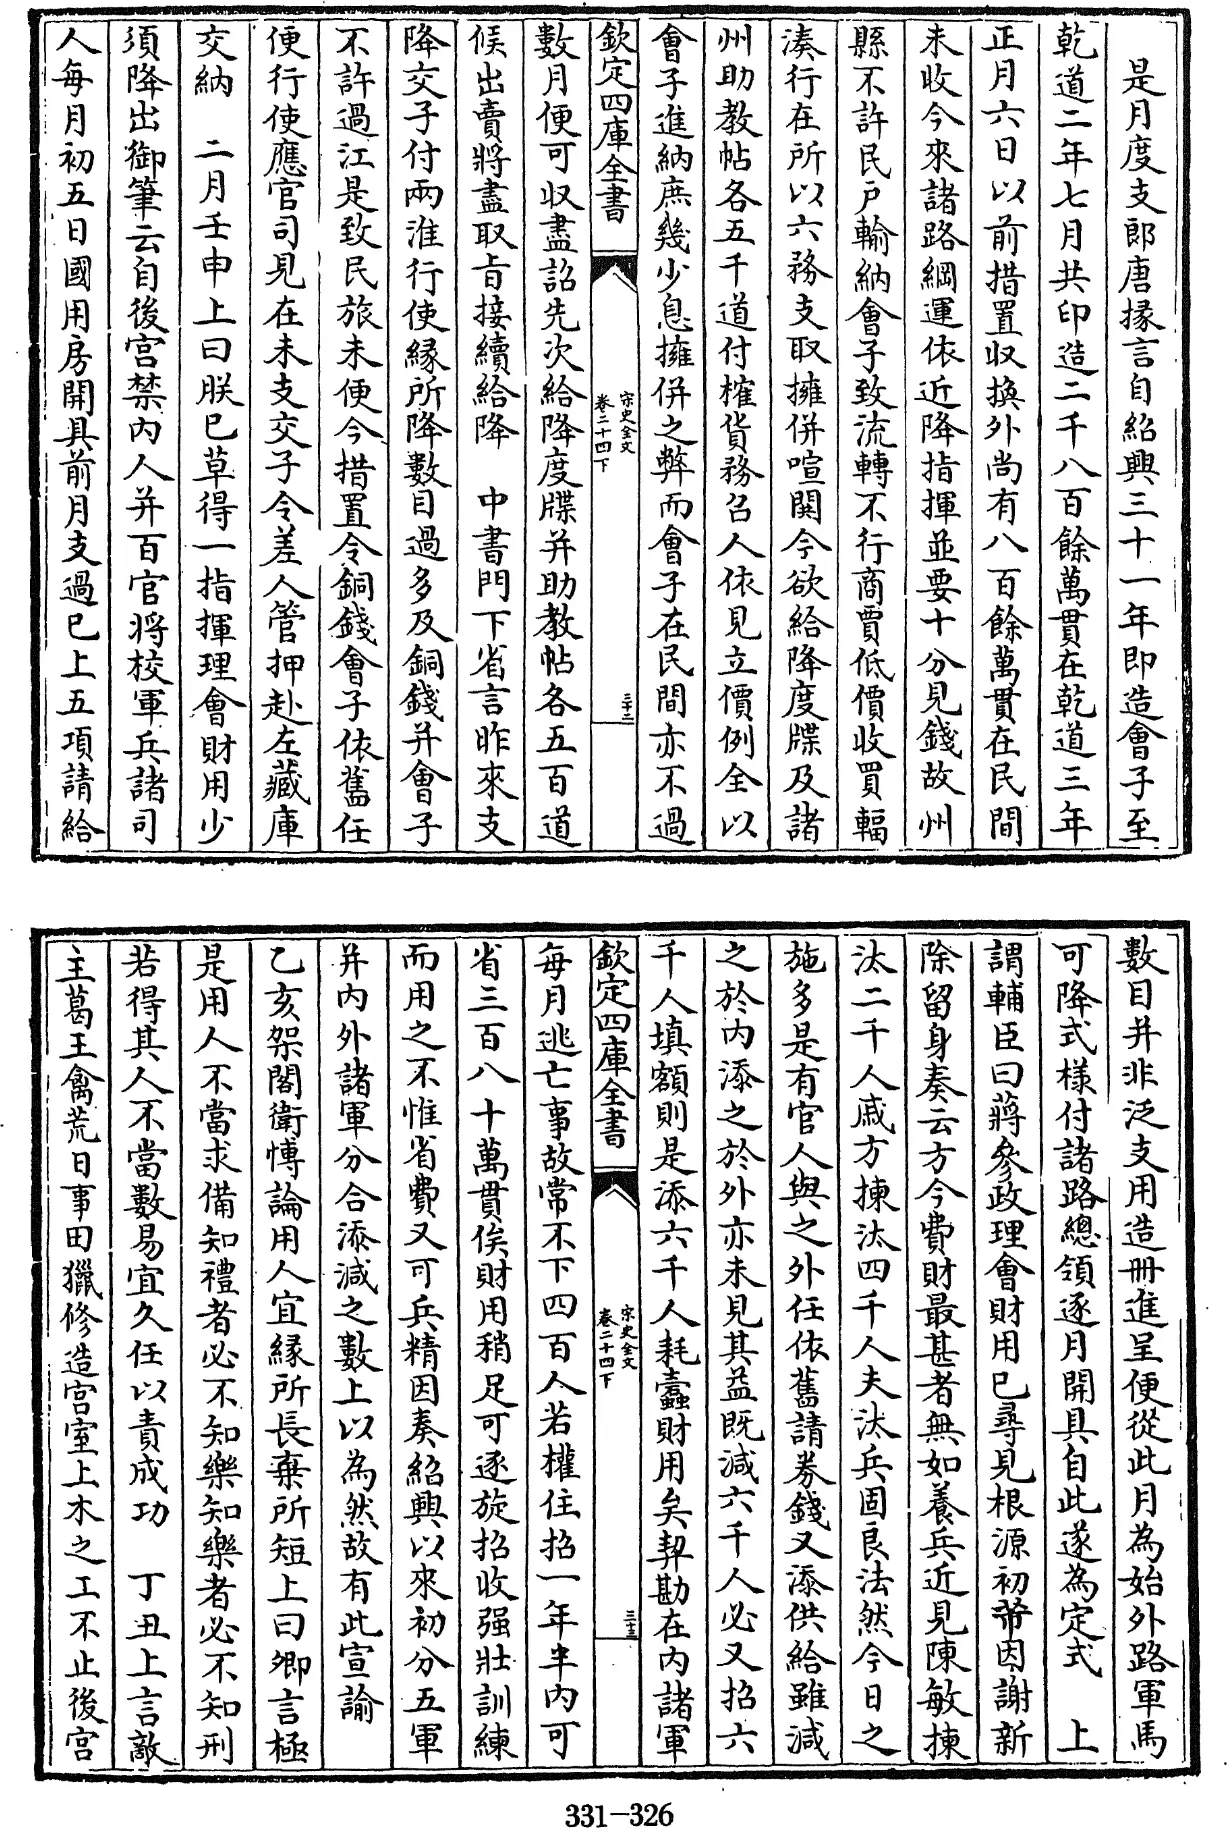 是月度支郎唐㻛言自紹興三十一年即造會子至
乾道二年七月共印造二千八百餘萬貫在乾道三年
正月六日以前措置収換外尚有八百餘萬貫在民間
未收今來諸路綱運依近降指揮並要十分見錢故州
縣不許民戸輸納會子致流轉不行商賈低價收買輻
湊行在所以六務支取擁併喧閧今欲給降度牒及諸
州助教帖各五千道付榷貨務召人依見立價例全以
會子進納庶幾少息擁併之弊而會子在民間亦不過
欽定四庫全書
宋史全文
卷二十四下
三十二
數月便可収盡詔先次給降度牒并助教帖各五百道
候出賣將盡取旨接續給降 中書門下省言昨來支
降交子付兩淮行使緣所降數目過多及銅錢并會子
不許過江是致民旅未便今措置令銅錢會子依舊任
便行使應官司見在未支交子令差人管押赴左藏庫
交納 二月壬申上曰朕已草得一指揮理會財用少
須降出御筆云自後宫禁内人并百官將校軍兵諸司
人每月初五日國用房開具前月支過已上五項請給
數目并非泛支用造冊進呈便從此月為始外路軍馬
可降式様付諸路總領逐月開具自此遂為定式 上
謂輔臣曰蔣參政理會財用已尋見根源初芾因謝新
除留身奏云方今費財最甚者無如養兵近見陳敏揀
汰二千人戚方揀汰四千人夫汰兵固良法然今日之
施多是有官人與之外任依舊請券錢又添供給雖減
之於内添之於外亦未見其益既減六千人必又招六
千人填額則是添六千人耗蠧財用矣契勘在内諸軍
欽定四庫全書
宋史全文
卷二十四下
三十三
每月逃亡事故常不下四百人若權住招一年半内可
省三百八十萬貫俟財用稍足可逐旋招收强壯訓練
而用之不惟省費又可兵精因奏紹興以來初分五軍
并内外諸軍分合添減之數上以為然故有此宣諭
乙亥架閣衛博論用人宜緣所長棄所短上曰卿言極
是用人不當求備知禮者必不知樂知樂者必不知刑
若得其人不當數易宜久任以責成功 丁丑上言敵
主葛王禽荒日事田獵修造宫室土木之工不止後宫
331-326